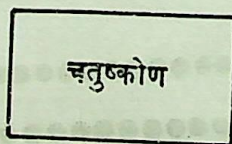 चतुष्कोण